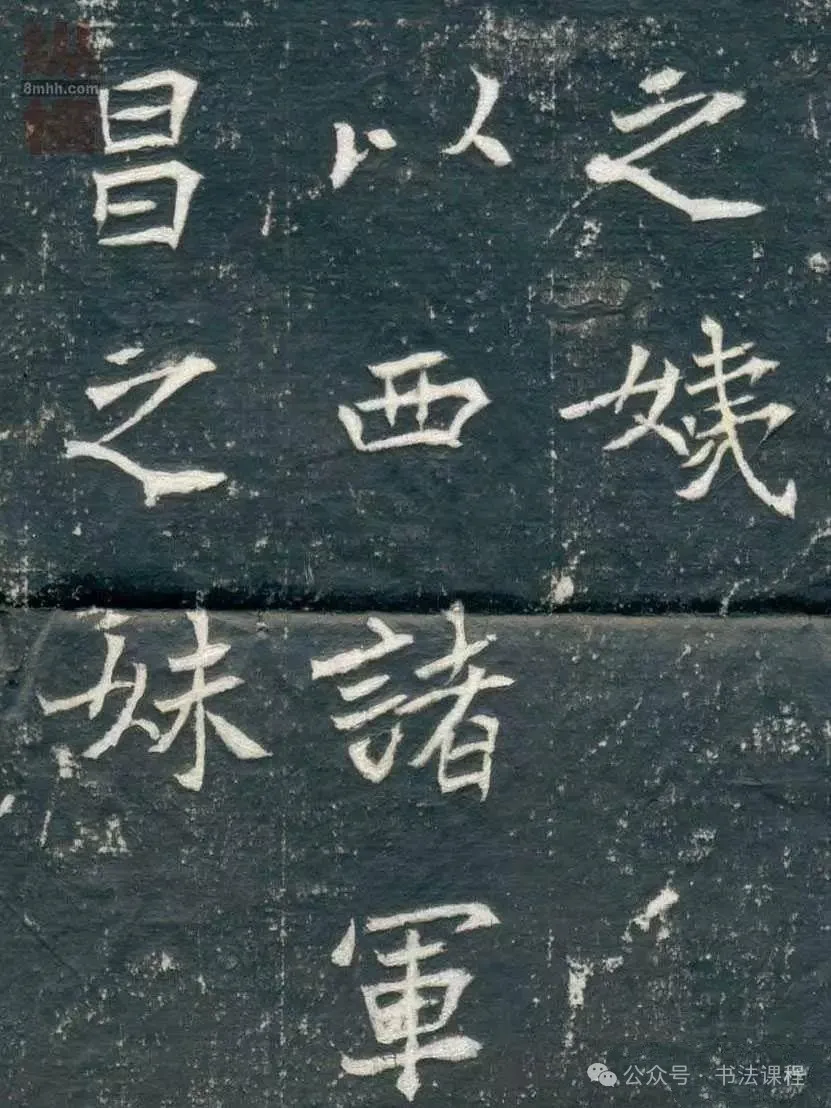 之姨
以西諸軍
昌之妹
8mhh.com
公众号·书法课程